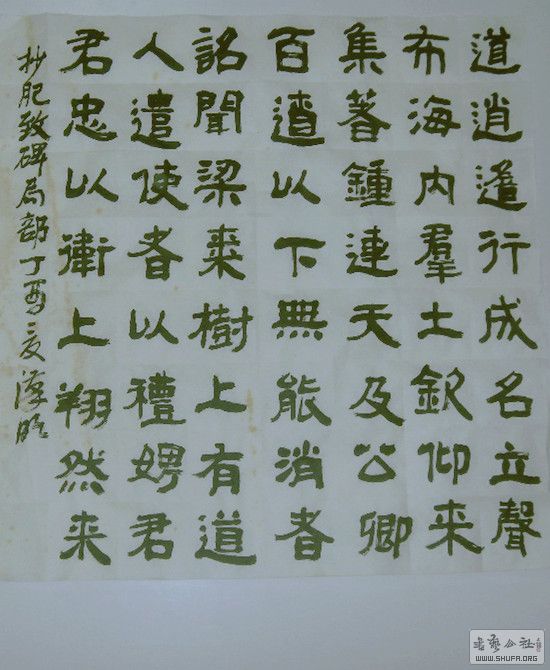 道逍遙行成名立聲
布海内羣士欽仰来
集著鍾連天及公卿
百遼以下無能消者
詔聞梁棗樹上有道
人遣使者以禮娉君
君忠以衛上翔然来
抄肥致碑局部丁酉之夏
书艺公社
WWW.SHUFA.ORG